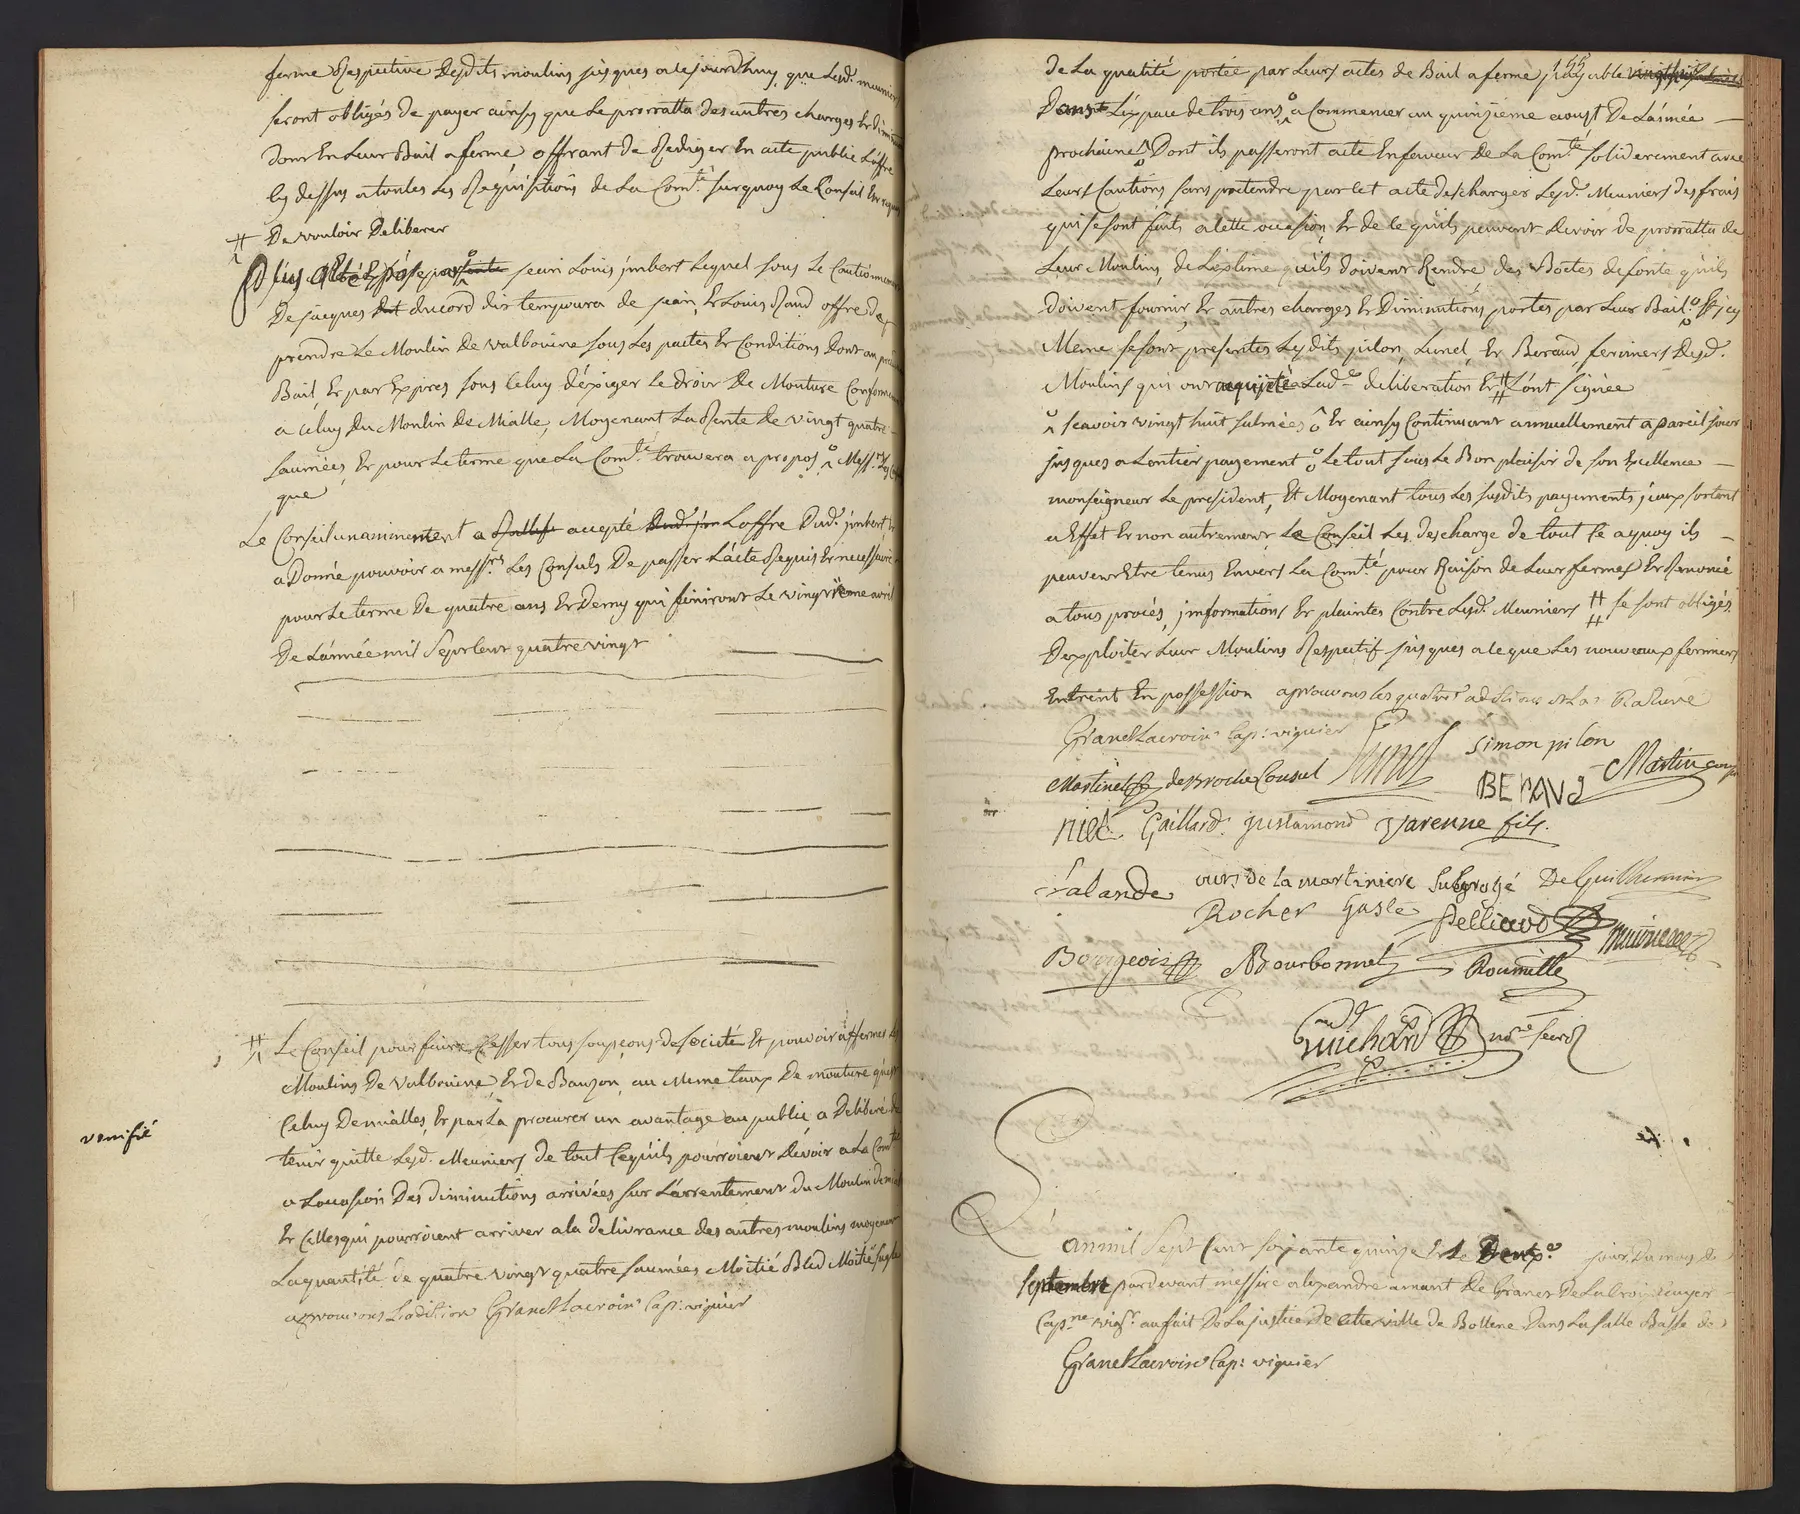 ferme Respective Desdits moulins jusques a cejourdhuy, que Lesd. meuniers
seront obligés de payer ainsy que Le prorratta des autres charges Et diminu
dont En Leur Bail a ferme offrant de Rediger En acte public L'offre
cy dessus a toutes Les Requisitions de La Com.té surquoy Le Conseil Est requis
De vouloir Deliberer
Plus a Eté Exposé par jean Louis jmbert Lequel sous Le Cautionnement
De jacques ducord dit tempoura de jean, Et Louis Raud offre de
prendre Le Moulin de valbouine sous Les pactes Et Conditions Dont au
Bail, Et par Exprès sous Celuy d'éxiger Le droit De Mouture Conforme
a Celuy du Moulin de Mialle, Moyenant La Rente de vingt quatre
saumées, Et pour Le terme que La Com.té trouvera a propos
que
Le Conseil unanimement a accepté L'offre Dud. jmbert Et
a Donné pouvoir a mess.rs Les Consuls De passer L'acte Requis Et necessaire
pour Le terme De quatre ans Et Demy qui finiront Le vingtième avril
De L'année mil Sept Cent quatre vingt
Le Conseil pour faire Cesser tous soupçons de société Et pouvoir affermer Les
Moulins De Valbouine, Et de Bauzon, au Meme taux De mouture qu'est
Celuy De mialles, Et par Là procurer un avantage au public, a Deliberé de
tenir quitte Lesd. Meuniers de tout Cequ'ils pourroient Devoir a La Com.té
a L'ocasion Des diminutions arrivées sur L'arrentement du Moulin de mialle
Et Celles qui pourroient arriver a la delivrance des autres moulins moyenant
La quantité de quatre vingt quatre saumées Moitié Bled Moitié seigle
aprouvons L'adition Granet Lacroix Cap: viguier
verifié
155
de La qualité portée par Leurs actes de Bail a ferme payable
Dans L'éspace de trois ans a Commencer au quinzieme aoust De L'année
prochaine Dont ils passeront acte En faveur De La Com.té soliderement avec
Leurs Cautions sans pretendre par Cet acte descharger Lesd. Meuniers des frais
qui se sont faits a Cette occasion, Et de Ce qu'ils peuvent devoir de prorratta de
Leur Moulins, de qu'ils doivent Rendre des Boetes de fonte qu'ils
doivent fournir, Et autres charges Et Diminutions portés par Leur Bail. Et jcy
Meme se sont presentés Lesdits pilon, Lunel, Et Beraud fermiers Desd.
Moulins qui ont acquiescé a Lad. deliberation Et L'ont signée
scavoir vingt huit salmées Et ainsy Continuant annuellement a pareil jour
jusques a L'entier payement Le tout sous Le Bon plaisir de son Excellence
monseigneur Le president, Et Moyenant tous Les susdits payements, jceux sortant
a Effet Et non autrement Le Conseil Les descharge de tout Ce aquoy ils
peuvent Etre tenus Envers La Com.té pour Raison de Leur fermes Et Renoncé
a tous procés, jnformations Et plaintes Contre Lesd. Meuniers se sont obligés
D'exploiter Leur Moulins Respectif jusques a Ceque Les nouveaux fermiers
Entrent En possession aprouvons les quatre aditions Et La Rature
Granet Lacroix Cap: viguier Lunel Simon pilon
Martinel de Broche Consul BERAUd Martin
niel Gaillard justamond Varenne fils
Lalande ours de la martiniere Subrogé De Guilhermier
Rocher Gasle Pelliard
Bourgeois Bourbonnet Roumille
michard no.re secr.
L'an mil Sept Cent soixante quinze Et Le Deux.e jour du mois De
septembre pardevant messire alexandre amant de Granet De Lacroix Ecuyer
Cap.ne vig.r au fait De La justice De Cette ville de Bollene Dans La salle Basse de
Granet Lacroix Cap: viguier